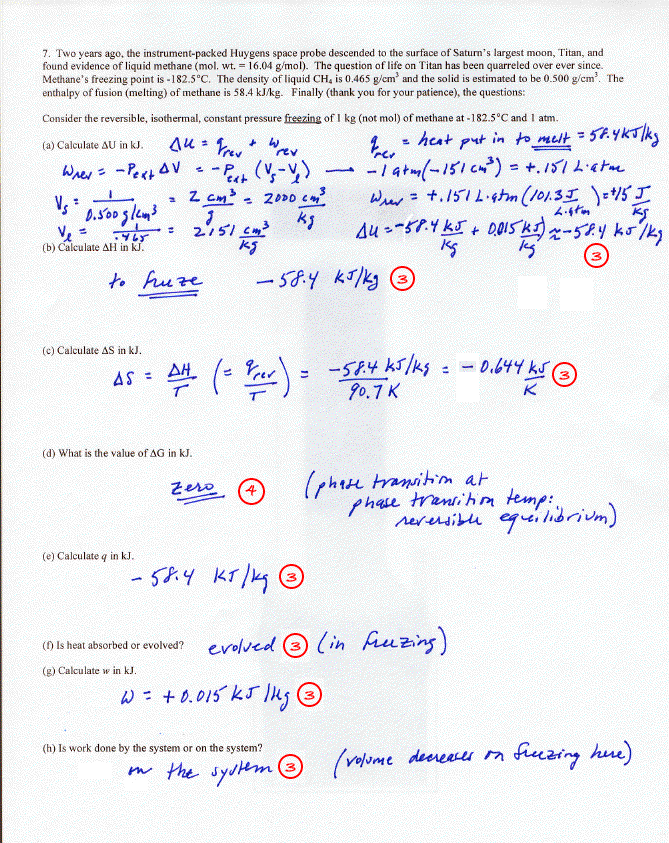 7. Two years ago, the instrument-packed Huygens space probe descended to the surface of Saturn's largest moon, Titan, and
found evidence of liquid methane (mol. wt. = 16.04 g/mol). The question of life on Titan has been quarreled over ever since.
Methane's freezing point is -182.5°C. The density of liquid CH₄ is 0.465 g/cm³ and the solid is estimated to be 0.500 g/cm³. The
enthalpy of fusion (melting) of methane is 58.4 kJ/kg. Finally (thank you for your patience), the questions:
Consider the reversible, isothermal, constant pressure freezing of 1 kg (not mol) of methane at -182.5°C and 1 atm.
(a) Calculate ΔU in kJ. ΔU = q_rev + w_rev q_rev = heat put in to melt = 58.4 kJ/kg
W_rev = -P_ext ΔV = -P_ext (V_s - V_l) — -1 atm (-151 cm³) = +.151 L·atm
V_s = 1 / 0.500 g/cm³ = 2 cm³/g = 2000 cm³/kg W_rev = +.151 L·atm (101.3 J / L·atm) = +15 J/kg
V_l = 1 / .465 = 2151 cm³/kg ΔU = -58.4 kJ/kg + 0.015 kJ/kg ≈ -58.4 kJ/kg
3
(b) Calculate ΔH in kJ.
to freeze -58.4 kJ/kg 3
(c) Calculate ΔS in kJ.
ΔS = ΔH/T (= q_rev/T) = -58.4 kJ/kg / 90.7 K = -0.644 kJ/K 3
(d) What is the value of ΔG in kJ.
zero 4 (phase transition at
phase transition temp:
reversible equilibrium)
(e) Calculate q in kJ.
-58.4 kJ/kg 3
(f) Is heat absorbed or evolved? evolved 3 (in freezing)
(g) Calculate w in kJ.
W = +0.015 kJ/kg 3
(h) Is work done by the system or on the system?
on the system 3 (volume decreases on freezing here)